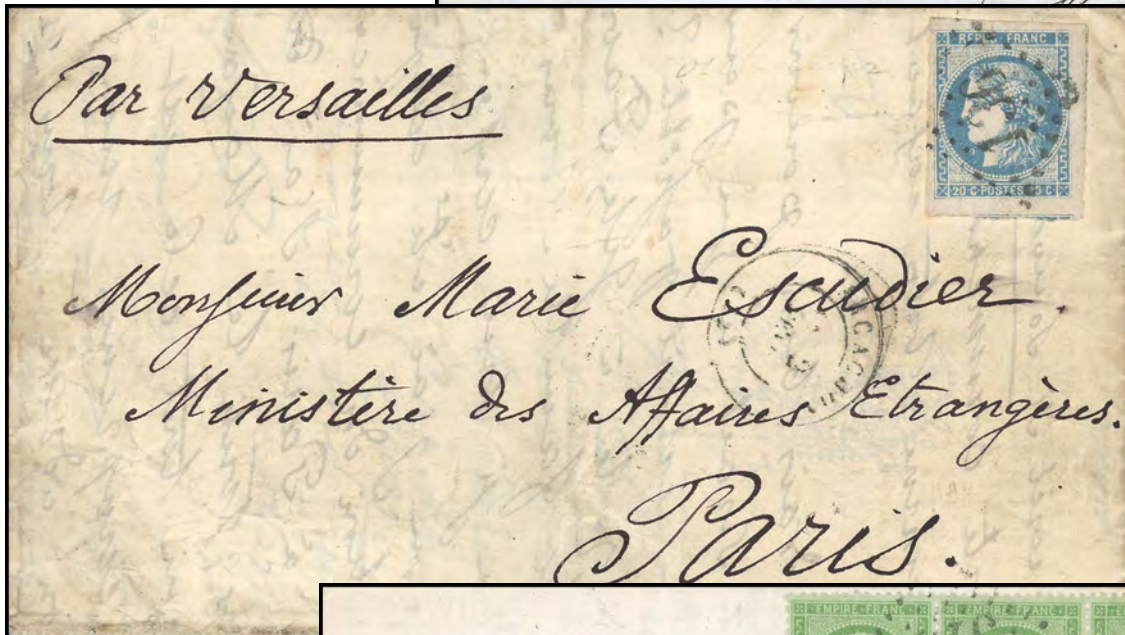 Par Versailles
REPUB FRANC
20 C POSTES 20 C
Monsieur Marie Escudier
Ministère des Affaires Etrangères.
Paris.
EMPIRE FRANC
EMPIRE FRANC